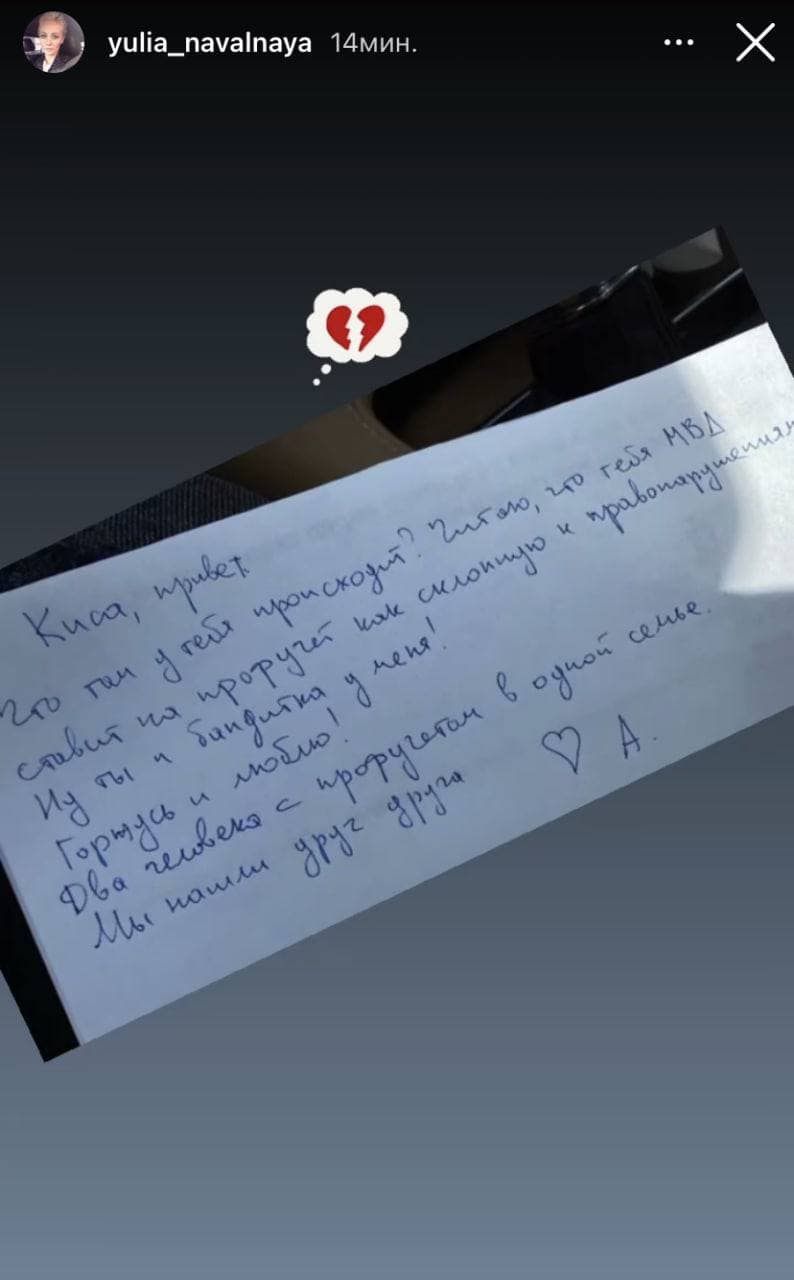 yulia_navalnaya 14мин.
Киса, привет.
Что там у тебя происходит? Читаю, что тебя МВД
ставит на профучёт как склонную к правонарушениям
Ну ты и бандитка у меня!
Горжусь и люблю!
Два человека с профучетом в одной семье.
Мы нашли друг друга ♡ А.